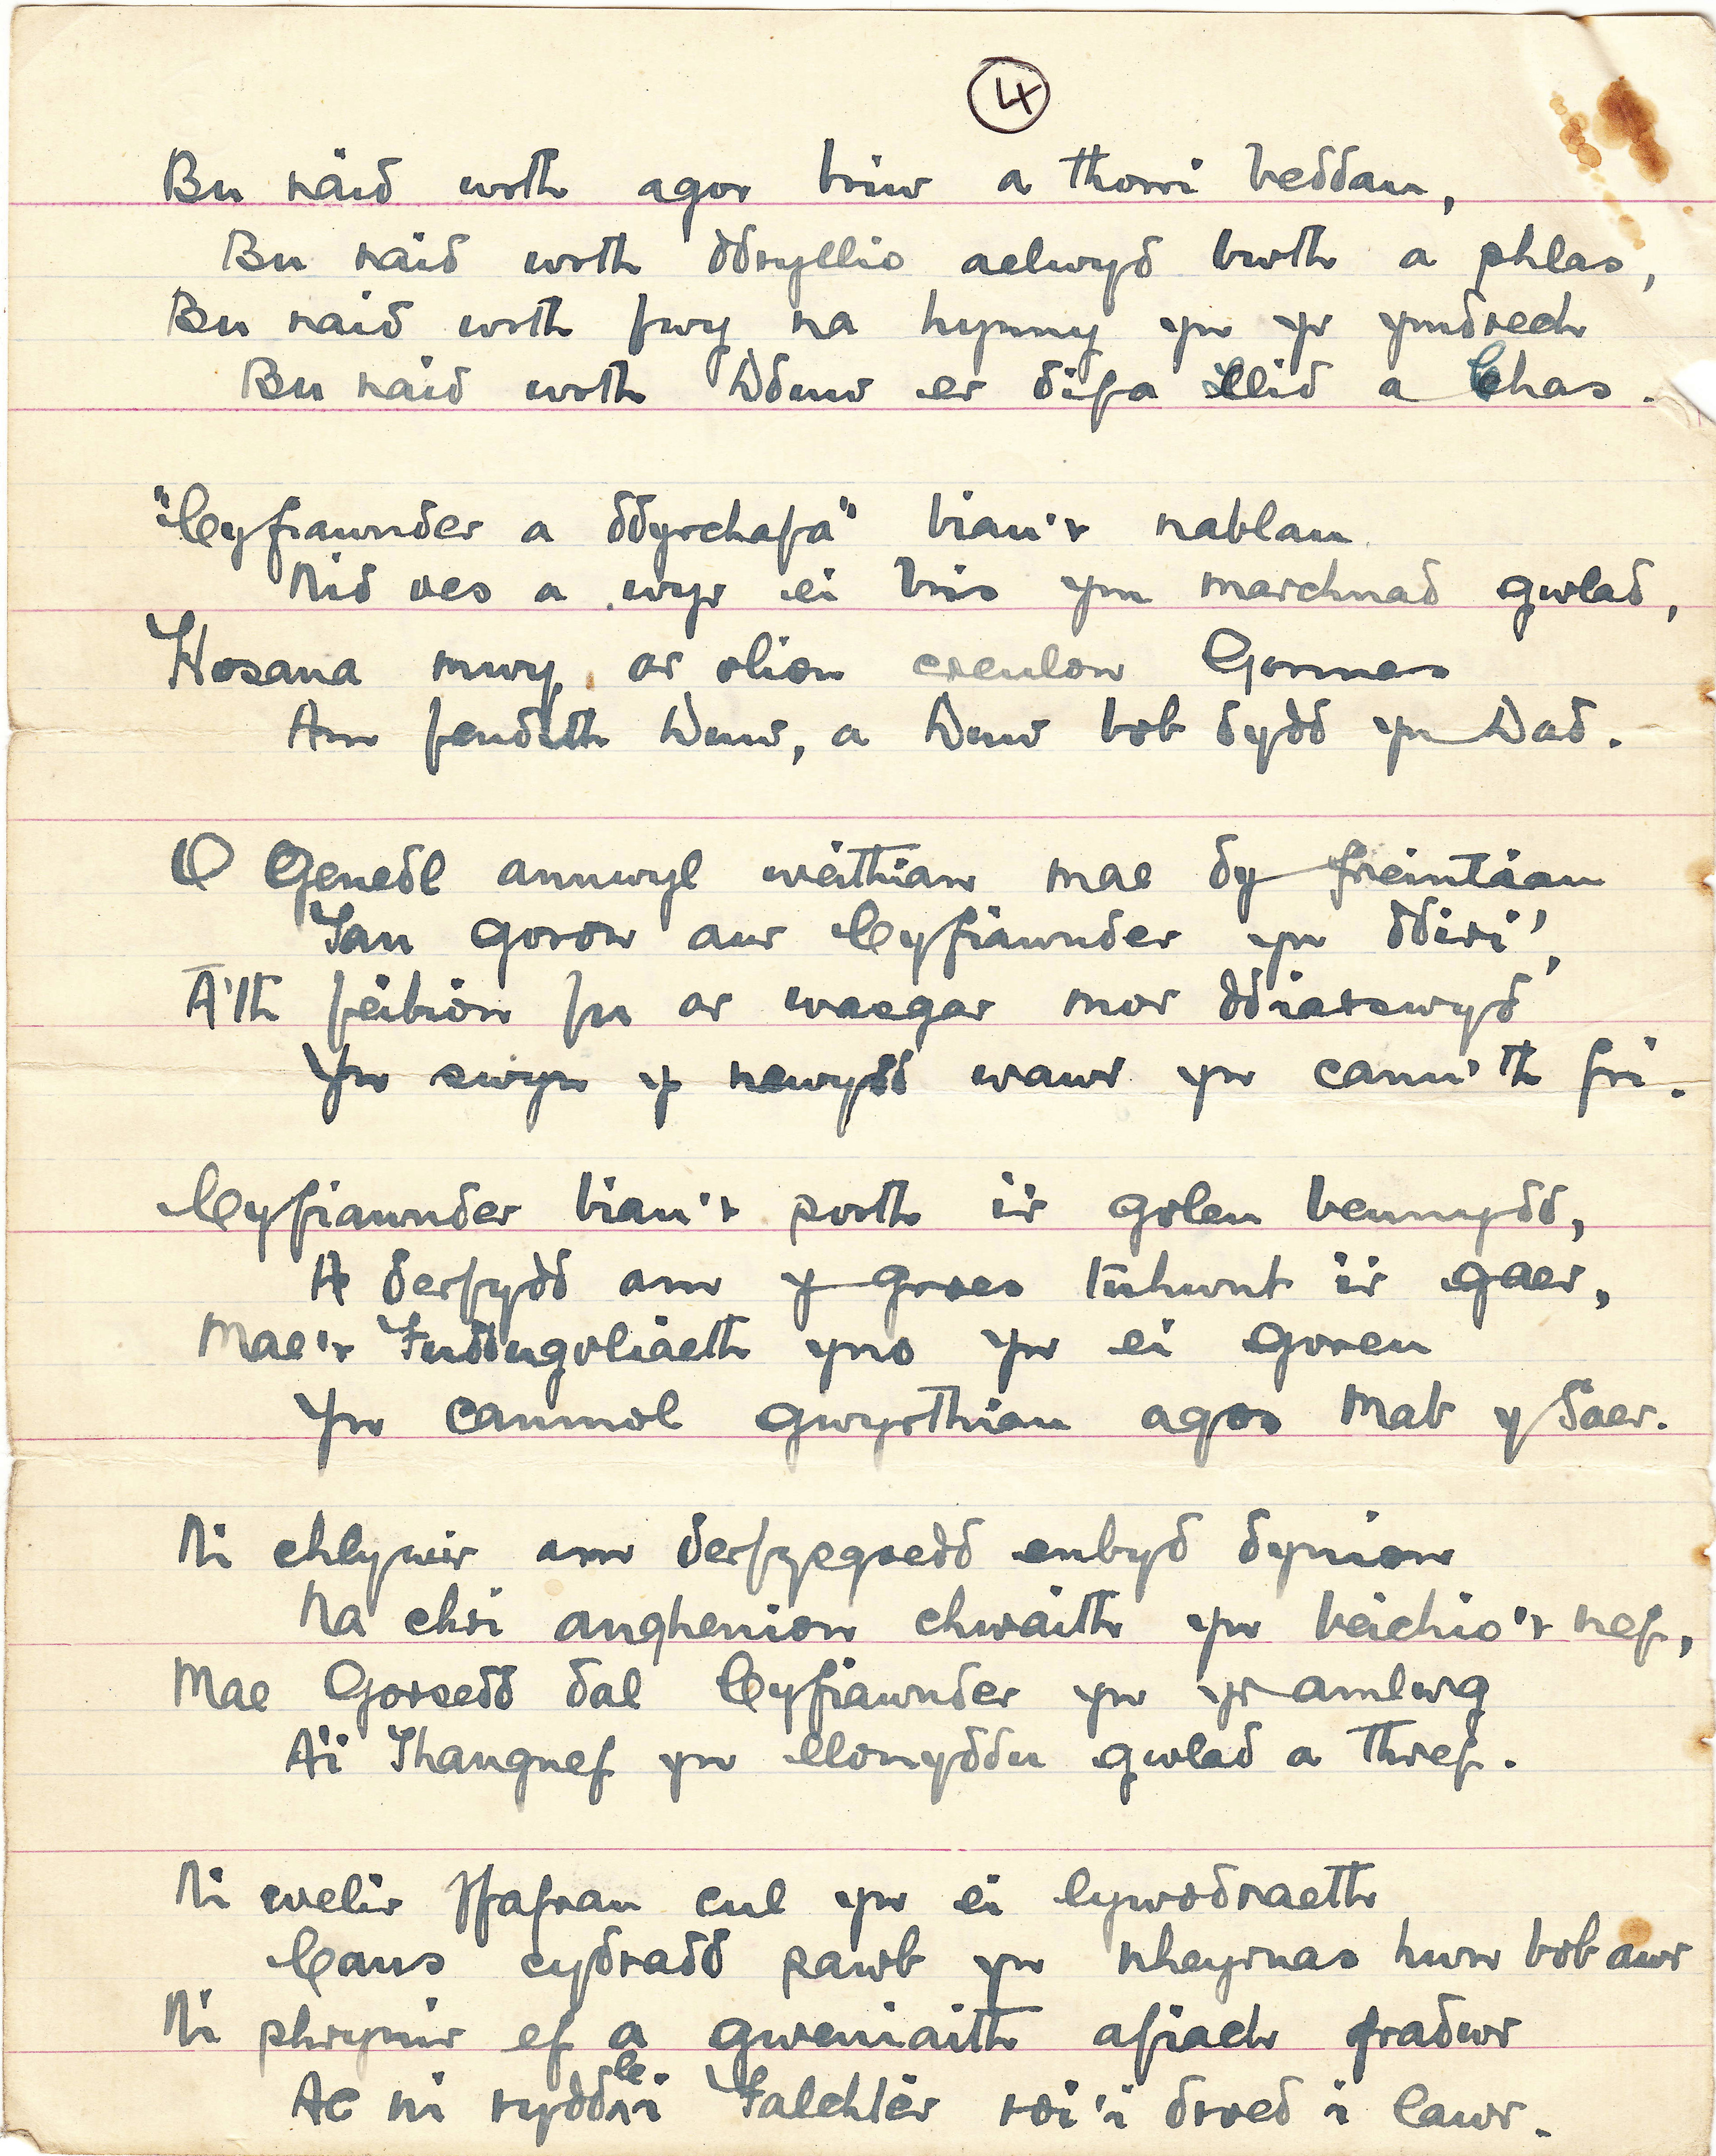 4
Bu raid wrth agor briw a thorri beddau,
Bu raid wrth ddryllio aelwyd bwth a phlas,
Bu raid wrth fwy na hynny yn yr ymdrech
Bu raid wrth Dduw er difa llid a Chas.
"Cyfiawnder a ddyrchafa" biau'r nablau
Nid oes a wyr ei bris ym marchnad gwlad,
Hosana mwy, ar olion creulon Gormes
Am fendith Duw, a Duw bob dydd yn Dad.
O Genedl annwyl weithian mae dy freintiau
Tan goron aur Cyfiawnder yn ddiri',
A'th feibion fu ar wasgar mor ddiarswyd
Yn swyn y newydd wawr yn canu'th fri.
Cyfiawnder biau'r porth i'r golau beunydd,
A derfydd am y groes tuhwnt i'r gaer,
Mae'r Fuddugoliaeth yno yn ei goreu
Yn canmol gwyrthiau agos Mab y Saer.
Ni chlywir am derfysgoedd enbyd dynion
Na chri anghenion chwaith yn beichio'r nef,
Mae Gorsedd dal Cyfiawnder yn yr amlwg
A'i Thangnef yn llonyddu gwlad a thref.
Ni welir ffafrau cul yn ei lywodraeth
Caus cydradd pawb yn nheyrnas hwn bob awr
Ni phrynir ef a gweniaith afiach fradwr
Ac ni rydd le i Falchter roi'i droed i lawr.